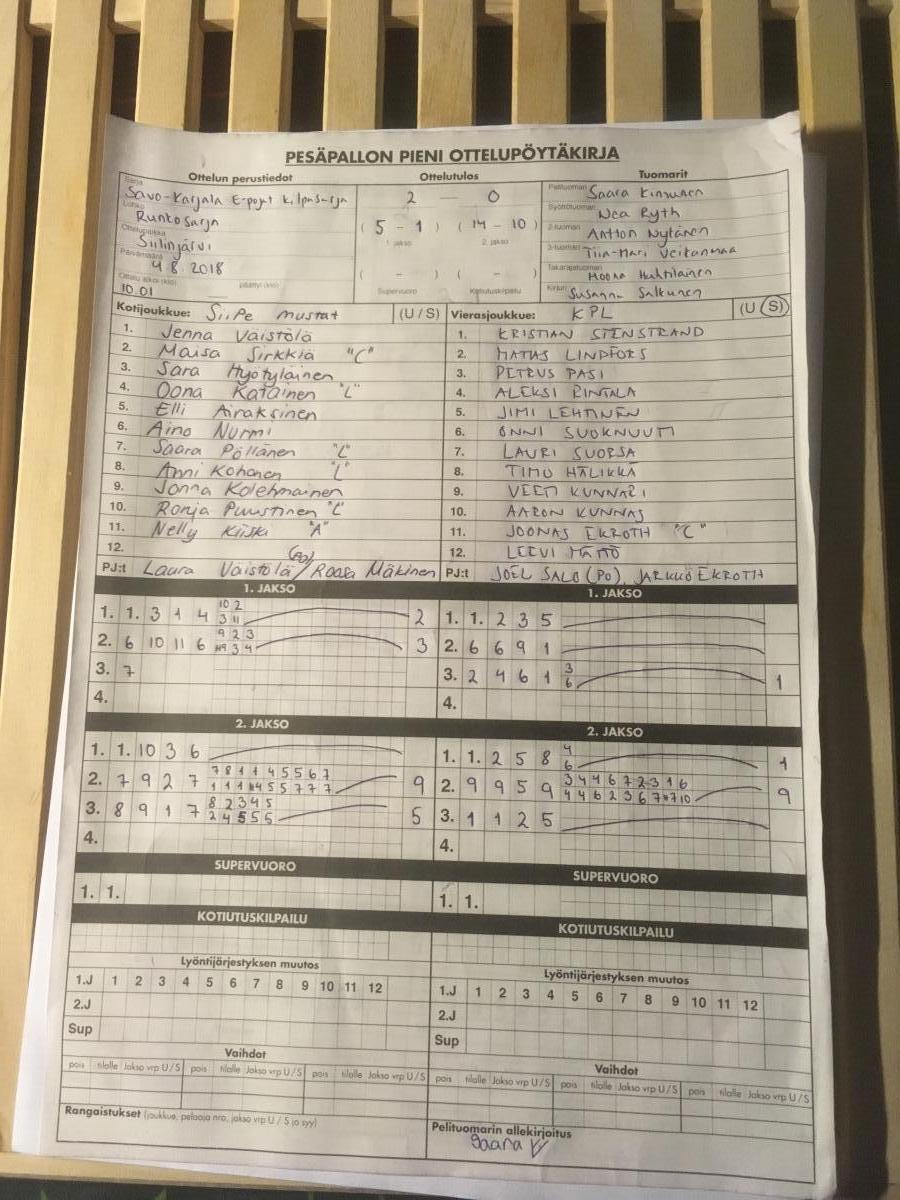 PESÄPALLON PIENI OTTELUPÖYTÄKIRJA
Ottelun perustiedot
Sarja
Savo-Karjala E-pojat kilpasarja
Lohko
Runkosarja
Ottelupaikka
Siilinjärvi
Päivämäärä
4.8.2018
Ottelu alkoi (klo) päättyi (klo)
10.01
Ottelutulos
2 — 0
( 5 - 1 ) ( 14 - 10 )
1. jakso 2. jakso
( - ) ( - )
Supervuoro Kotiutuskilpailu
Tuomarit
Pelituomari Saara Kinnunen
Syöttötuomari Nea Ryth
2-tuomari Anttон Nytänen
3-tuomari Tiia-Mari Veitonmaa
Takarajatuomari Moona Huhtilainen
Kirjuri Susanna Salkunen
Kotijoukkue: SiiPe mustat (U / S)
1. Jenna Väistölä
2. Maisa Sirkkiä "C"
3. Sara Hyötyläinen
4. Oona Katainen "L"
5. Elli Airaksinen
6. Aino Nurmi
7. Saara Pöllänen "L"
8. Anni Kohonen "L"
9. Jonna Kolehmainen
10. Ronja Puustinen "L"
11. Nelly Kiiski "A"
12.
PJ:t Laura Väistölä (PO) / Roosa Mäkinen
Vierasjoukkue: KPL (U / S)
1. KRISTIAN STENSTRAND
2. MATIAS LINDFORS
3. PETRUS PASI
4. ALEKSI RINTALA
5. JIMI LEHTINEN
6. ONNI SUOKNUUTI
7. LAURI SUORSA
8. TIMO HÄLIKKÄ
9. VEETI KUNNARI
10. AARON KUNNAS
11. JOONAS EKROTH "C"
12. LEEVI MÄTTÖ
PJ:t JOEL SALO (PO), JARKKO EKROTH
1. JAKSO
1. 1. 3 1 4 10 2 2
3 11
2. 6 10 11 6 9 2 3 3
3 4
3. 7
4.
1. JAKSO
1. 1. 2 3 5
2. 6 6 9 1
3. 2 4 6 1 3 1
6
4.
2. JAKSO
1. 1. 10 3 6
2. 7 9 2 7 7 8 1 1 4 5 5 6 7 9
1 1 1 4 5 5 7 7 7
3. 8 9 1 7 8 2 3 4 5 5
2 4 5 5 5
4.
2. JAKSO
1. 1. 2 5 8 4 1
6
2. 9 9 5 9 3 4 4 6 7 2 3 1 6 9
4 4 6 2 3 6 7 7 10
3. 1 1 2 5
4.
SUPERVUORO
1. 1.
SUPERVUORO
1. 1.
KOTIUTUSKILPAILU
KOTIUTUSKILPAILU
Lyöntijärjestyksen muutos
1.J 1 2 3 4 5 6 7 8 9 10 11 12
2.J
Sup
Lyöntijärjestyksen muutos
1.J 1 2 3 4 5 6 7 8 9 10 11 12
2.J
Sup
Vaihdot
pois tilalle Jakso vrp U / S pois tilalle Jakso vrp U / S pois tilalle Jakso vrp U / S
Vaihdot
pois tilalle Jakso vrp U / S pois tilalle Jakso vrp U / S pois tilalle Jakso vrp U / S
Rangaistukset (joukkue, pelaaja nro, jakso vrp U / S ja syy)
Pelituomarin allekirjoitus
Saara